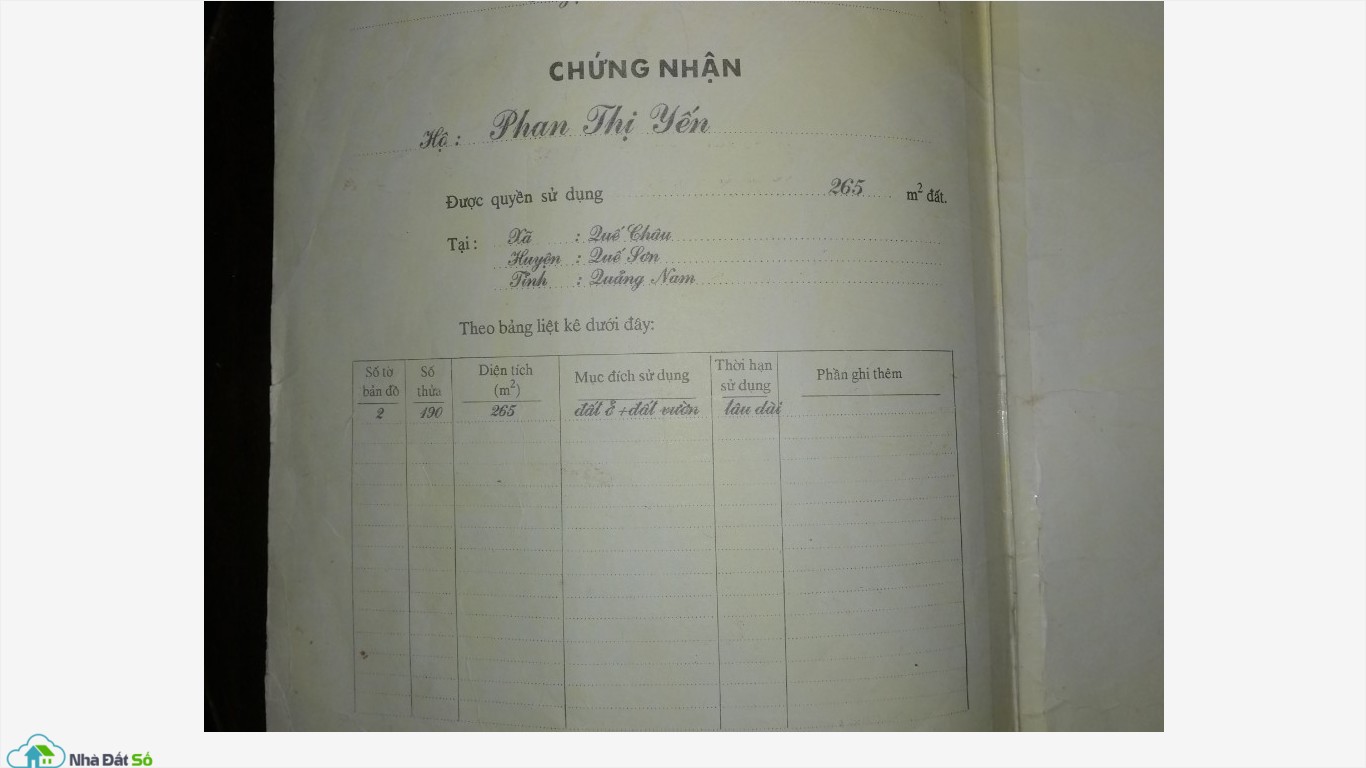 CHỨNG NHẬN
Hộ : Phan Thị Yến
Được quyền sử dụng 265 m² đất.
Tại : Xã : Quế Châu
Huyện : Quế Sơn
Tỉnh : Quảng Nam
Theo bảng liệt kê dưới đây:
Số tờ bản đồ Số thửa Diện tích (m²) Mục đích sử dụng Thời hạn sử dụng Phần ghi thêm
2 190 265 đất ở + đất vườn lâu dài
Nhà Đất Số